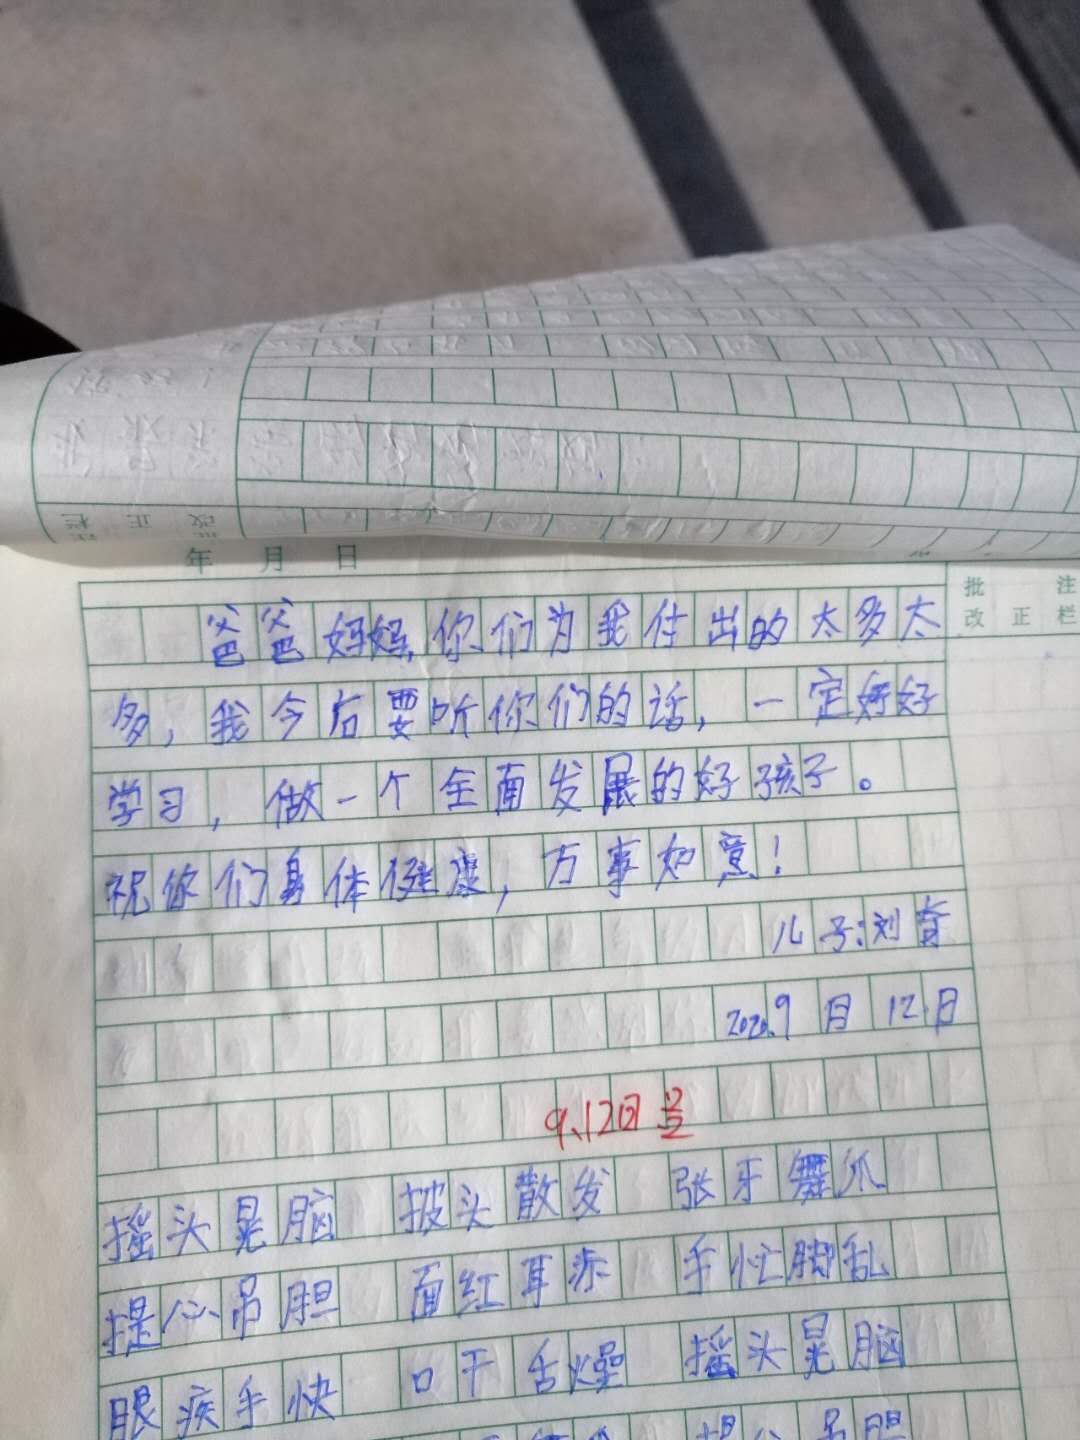 年 月 日
批 注
改 正 栏
爸爸妈妈,你们为我付出的太多太
多,我今后要听你们的话,一定好好
学习,做一个全面发展的好孩子。
祝你们身体健康,万事如意!
儿子:刘奋
2020.9月12日
9.12日
摇头晃脑 披头散发 张牙舞爪
提心吊胆 面红耳赤 手忙脚乱
眼疾手快 口干舌燥 摇头晃脑
提心吊胆